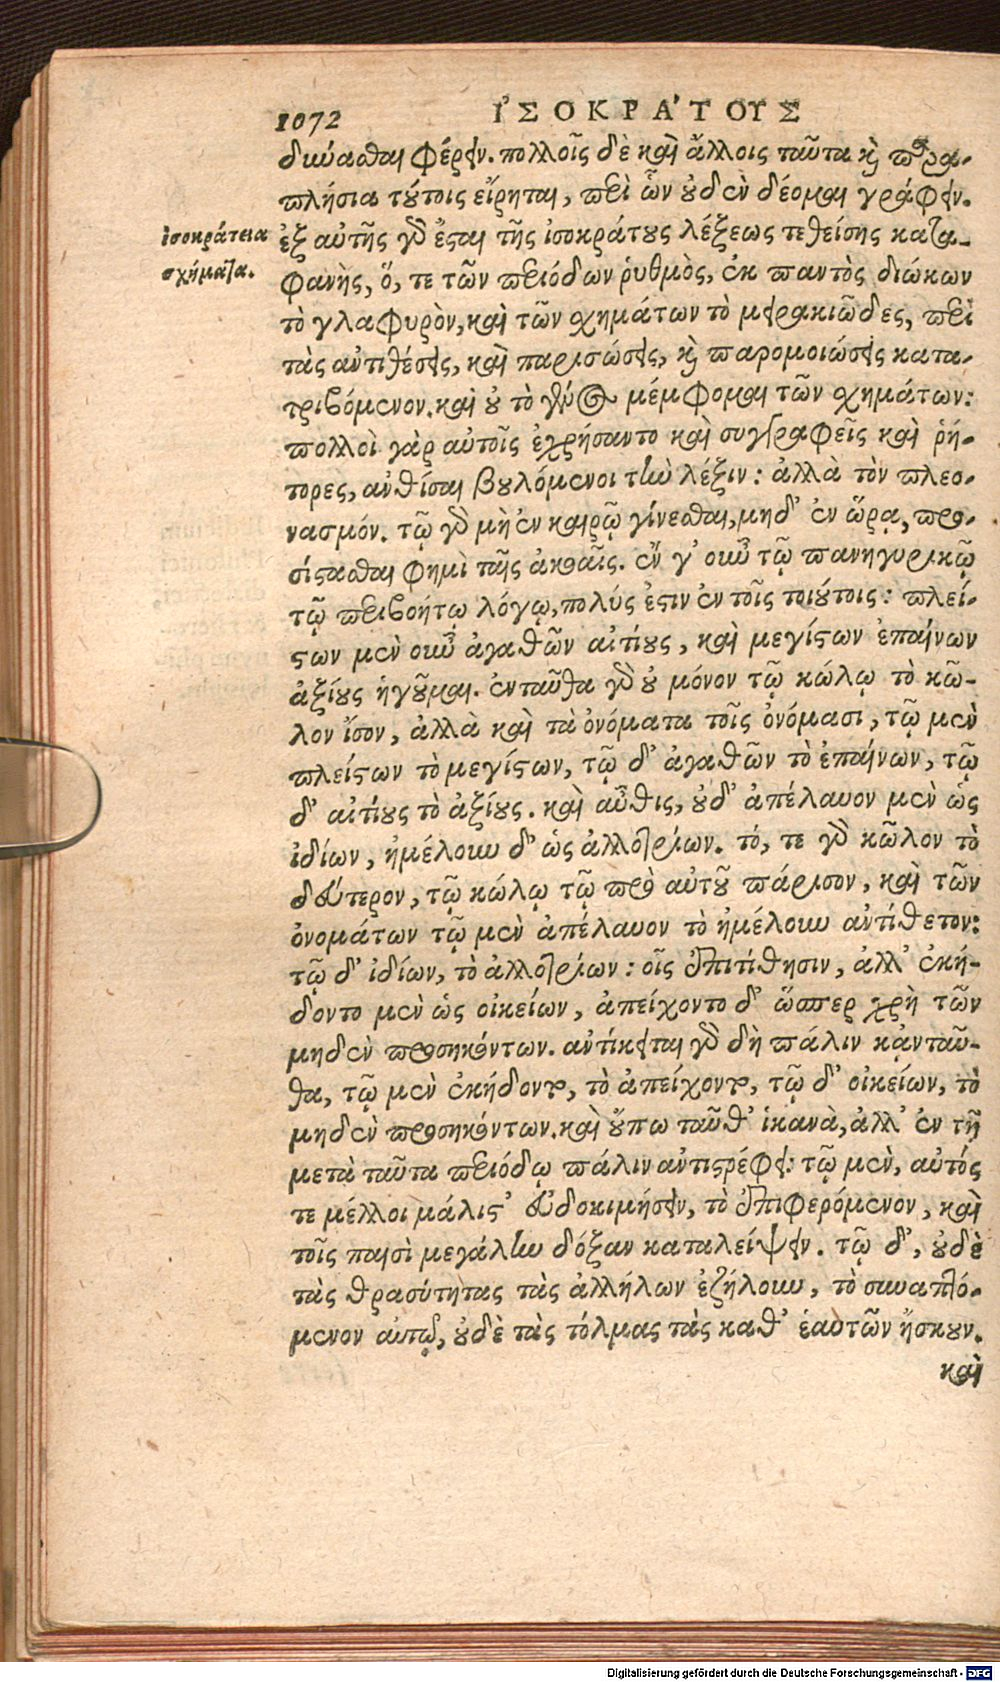 1072 ἸΣΟΚΡΆΤΟΥΣ
δύνασθαι φέρειν. πολλοῖς δὲ καὶ ἄλλοις ταῦτα καὶ παρα-
πλήσια τούτοις εἴρηται, περὶ ὧν οὐδὲν δέομαι γράφειν.
ἰσοκράτεια
σχήματα.
ἐξ αὐτῆς γὰρ ἔσται τῆς ἰσοκράτους λέξεως τεθείσης κατα-
φανὴς, ὅ, τε τῶν περιόδων ῥυθμὸς, ἐκ παντὸς διώκων
τὸ γλαφυρὸν, καὶ τῶν σχημάτων τὸ μειρακιῶδες, περὶ
τὰς ἀντιθέσεις, καὶ παρισώσεις, καὶ παρομοιώσεις κατα-
τριβόμενον. καὶ οὐ τὸ γένος μέμφομαι τῶν σχημάτων:
πολλοὶ γὰρ αὐτοῖς ἐχρήσαντο καὶ συγγραφεῖς καὶ ῥή-
τορες, ἀνθίσαι βουλόμενοι τὴν λέξιν: ἀλλὰ τὸν πλεο-
νασμόν. τῷ γὰρ μὴ ἐν καιρῷ γίνεσθαι, μηδ' ἐν ὥρᾳ, προ-
σίστασθαι φημὶ ταῖς ἀκοαῖς. ἐν γ' οὖν τῷ πανηγυρικῷ
τῷ περιβοήτῳ λόγῳ, πολύς ἐστιν ἐν τοῖς τοιούτοις: πλεί-
στων μὲν οὖν ἀγαθῶν αἰτίους, καὶ μεγίστων ἐπαίνων
ἀξίους ἡγοῦμαι. ἐνταῦθα γὰρ οὐ μόνον τῷ κώλῳ τὸ κῶ-
λον ἴσον, ἀλλὰ καὶ τὰ ὀνόματα τοῖς ὀνόμασι, τῷ μὲν
πλείστων τὸ μεγίστων, τῷ δ' ἀγαθῶν τὸ ἐπαίνων, τῷ
δ' αἰτίους τὸ ἀξίους. καὶ αὖθις, οὐδ' ἀπέλαυον μὲν ὡς
ἰδίων, ἠμέλουν δ' ὡς ἀλλοτρίων. τό, τε γὰρ κῶλον τὸ
δεύτερον, τῷ κώλῳ τῷ πρὸ αὐτοῦ πάρισον, καὶ τῶν
ὀνομάτων τῷ μὲν ἀπέλαυον τὸ ἠμέλουν ἀντίθετον:
τῷ δ' ἰδίων, τὸ ἀλλοτρίων: οἷς ἐπιτίθησιν, ἀλλ' ἐκή-
δοντο μὲν ὡς οἰκείων, ἀπείχοντο δ' ὥσπερ χρὴ τῶν
μηδὲν προσηκόντων. ἀντίκειται γὰρ δὴ πάλιν κἀνταῦ-
θα, τῷ μὲν ἐκήδοντο, τὸ ἀπείχοντο, τῷ δ' οἰκείων, τὸ
μηδὲν προσηκόντων. καὶ οὔπω ταῦθ' ἱκανὰ, ἀλλ' ἐν τῇ
μετὰ ταῦτα περιόδῳ πάλιν ἀντιστρέφει: τῷ μὲν, αὐτός
τε μέλλοι μάλιστ' εὐδοκιμήσειν, τὸ ἐπιφερόμενον, καὶ
τοῖς παισὶ μεγάλην δόξαν καταλείψειν. τῷ δ', οὐδὲ
τὰς θρασύτητας τὰς ἀλλήλων ἐζήλουν, τὸ συναπτό-
μενον αὐτῷ, οὐδὲ τὰς τόλμας τὰς καθ' ἑαυτῶν ἤσκουν.
καὶ
Digitalisierung gefördert durch die Deutsche Forschungsgemeinschaft - DFG